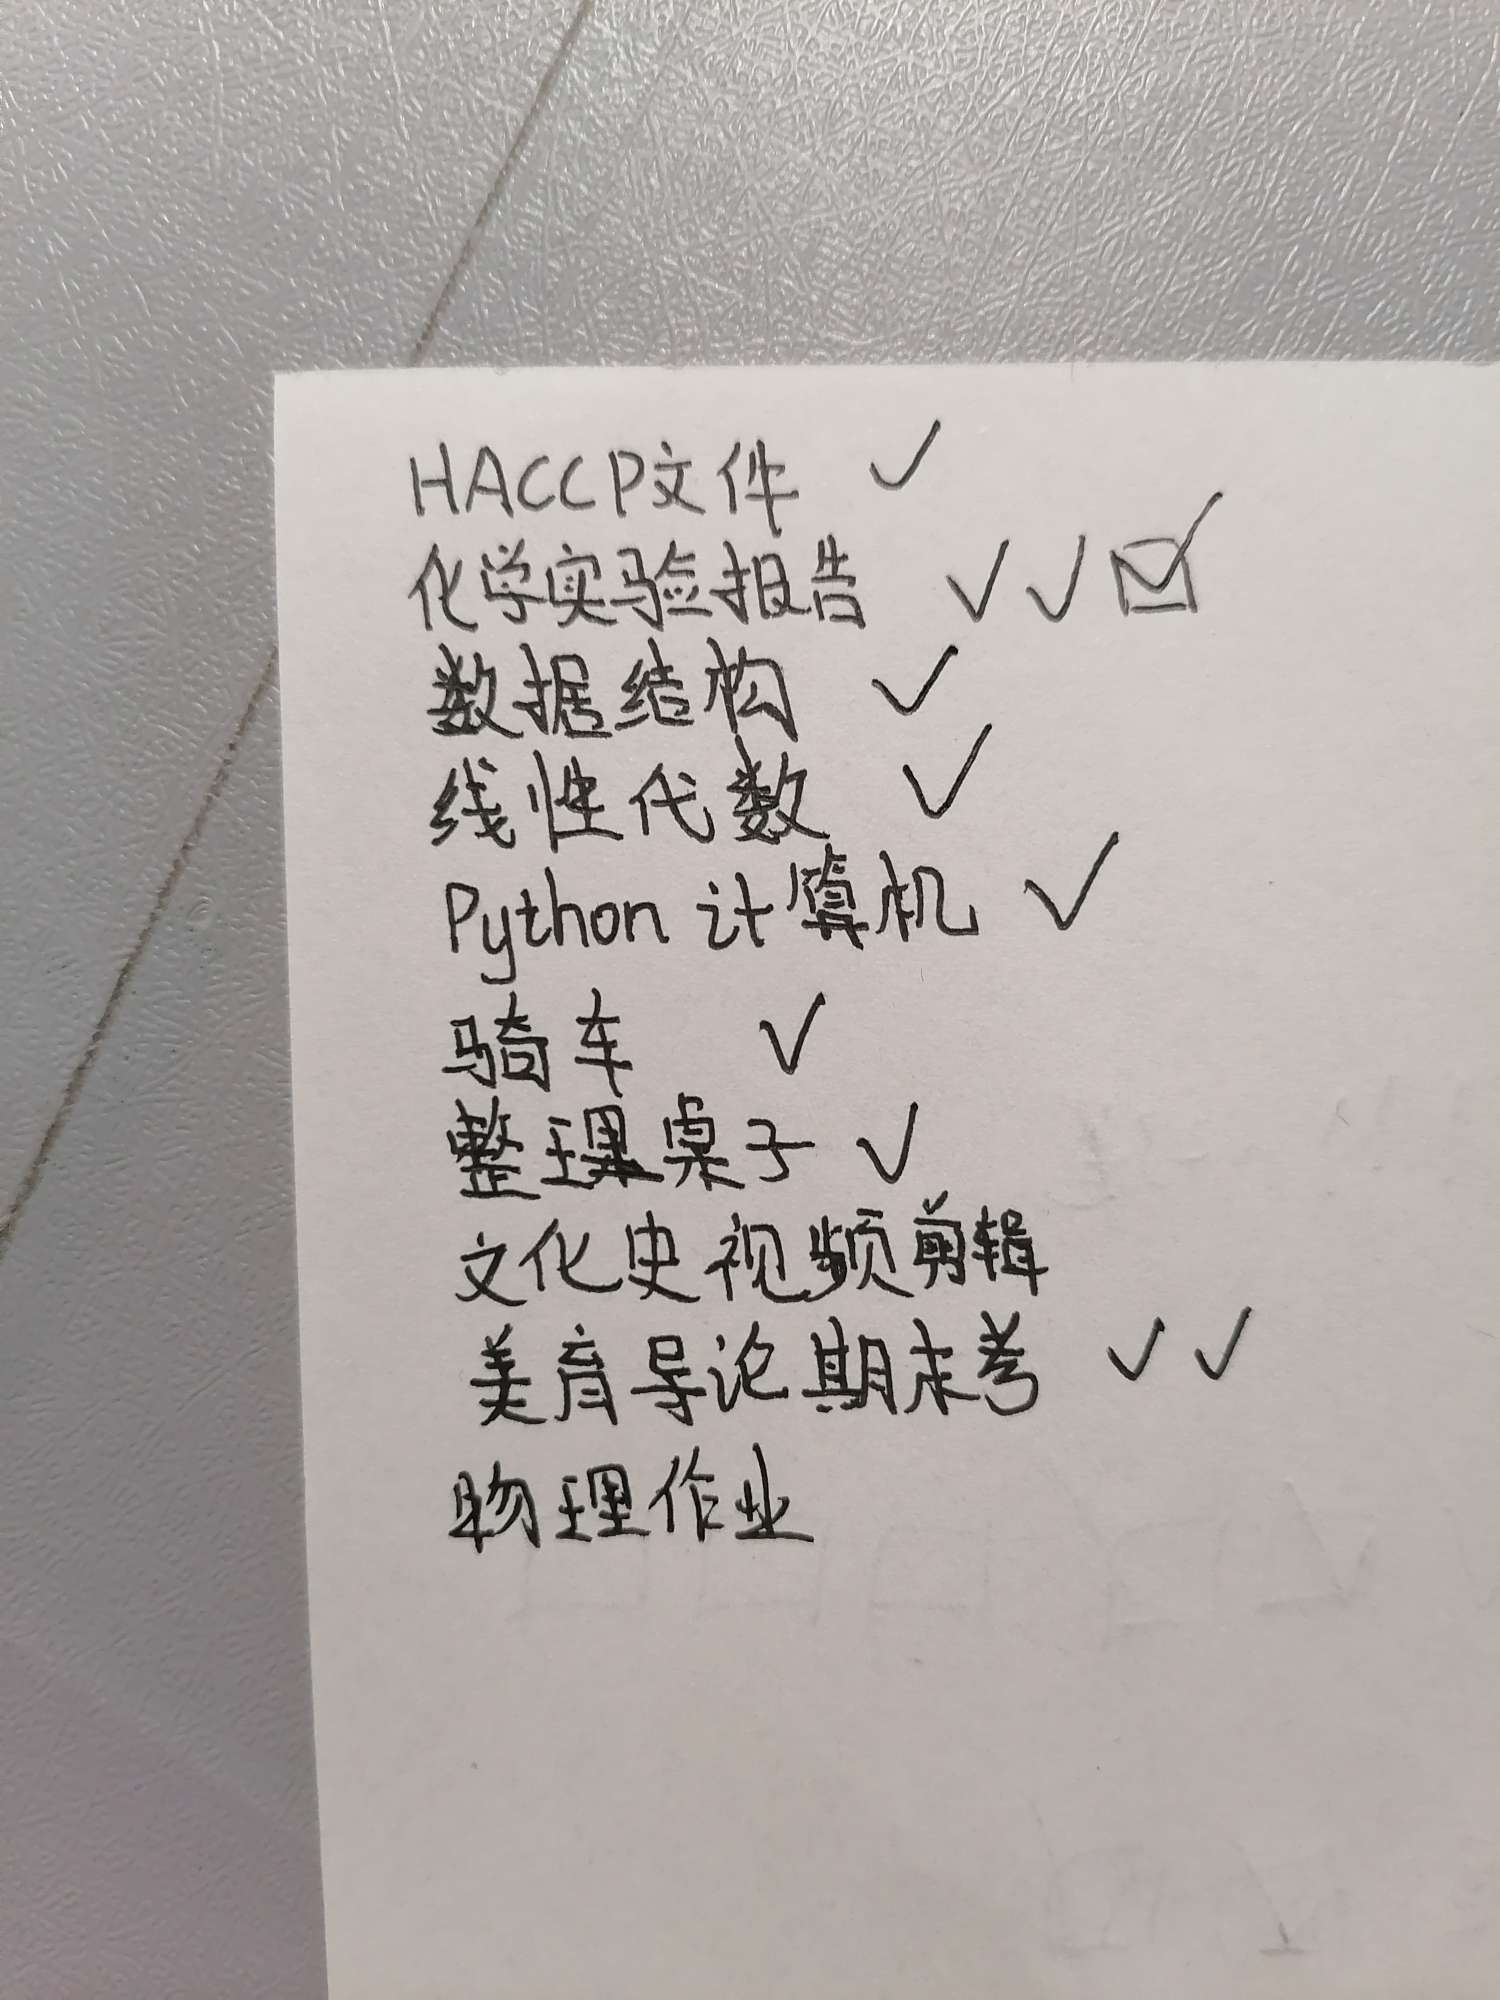 HACCP文件 ✓
化学实验报告 ✓✓☑
数据结构 ✓
线性代数 ✓
Python 计算机 ✓
骑车 ✓
整理桌子 ✓
文化史视频剪辑
美育导论期末考 ✓✓
物理作业